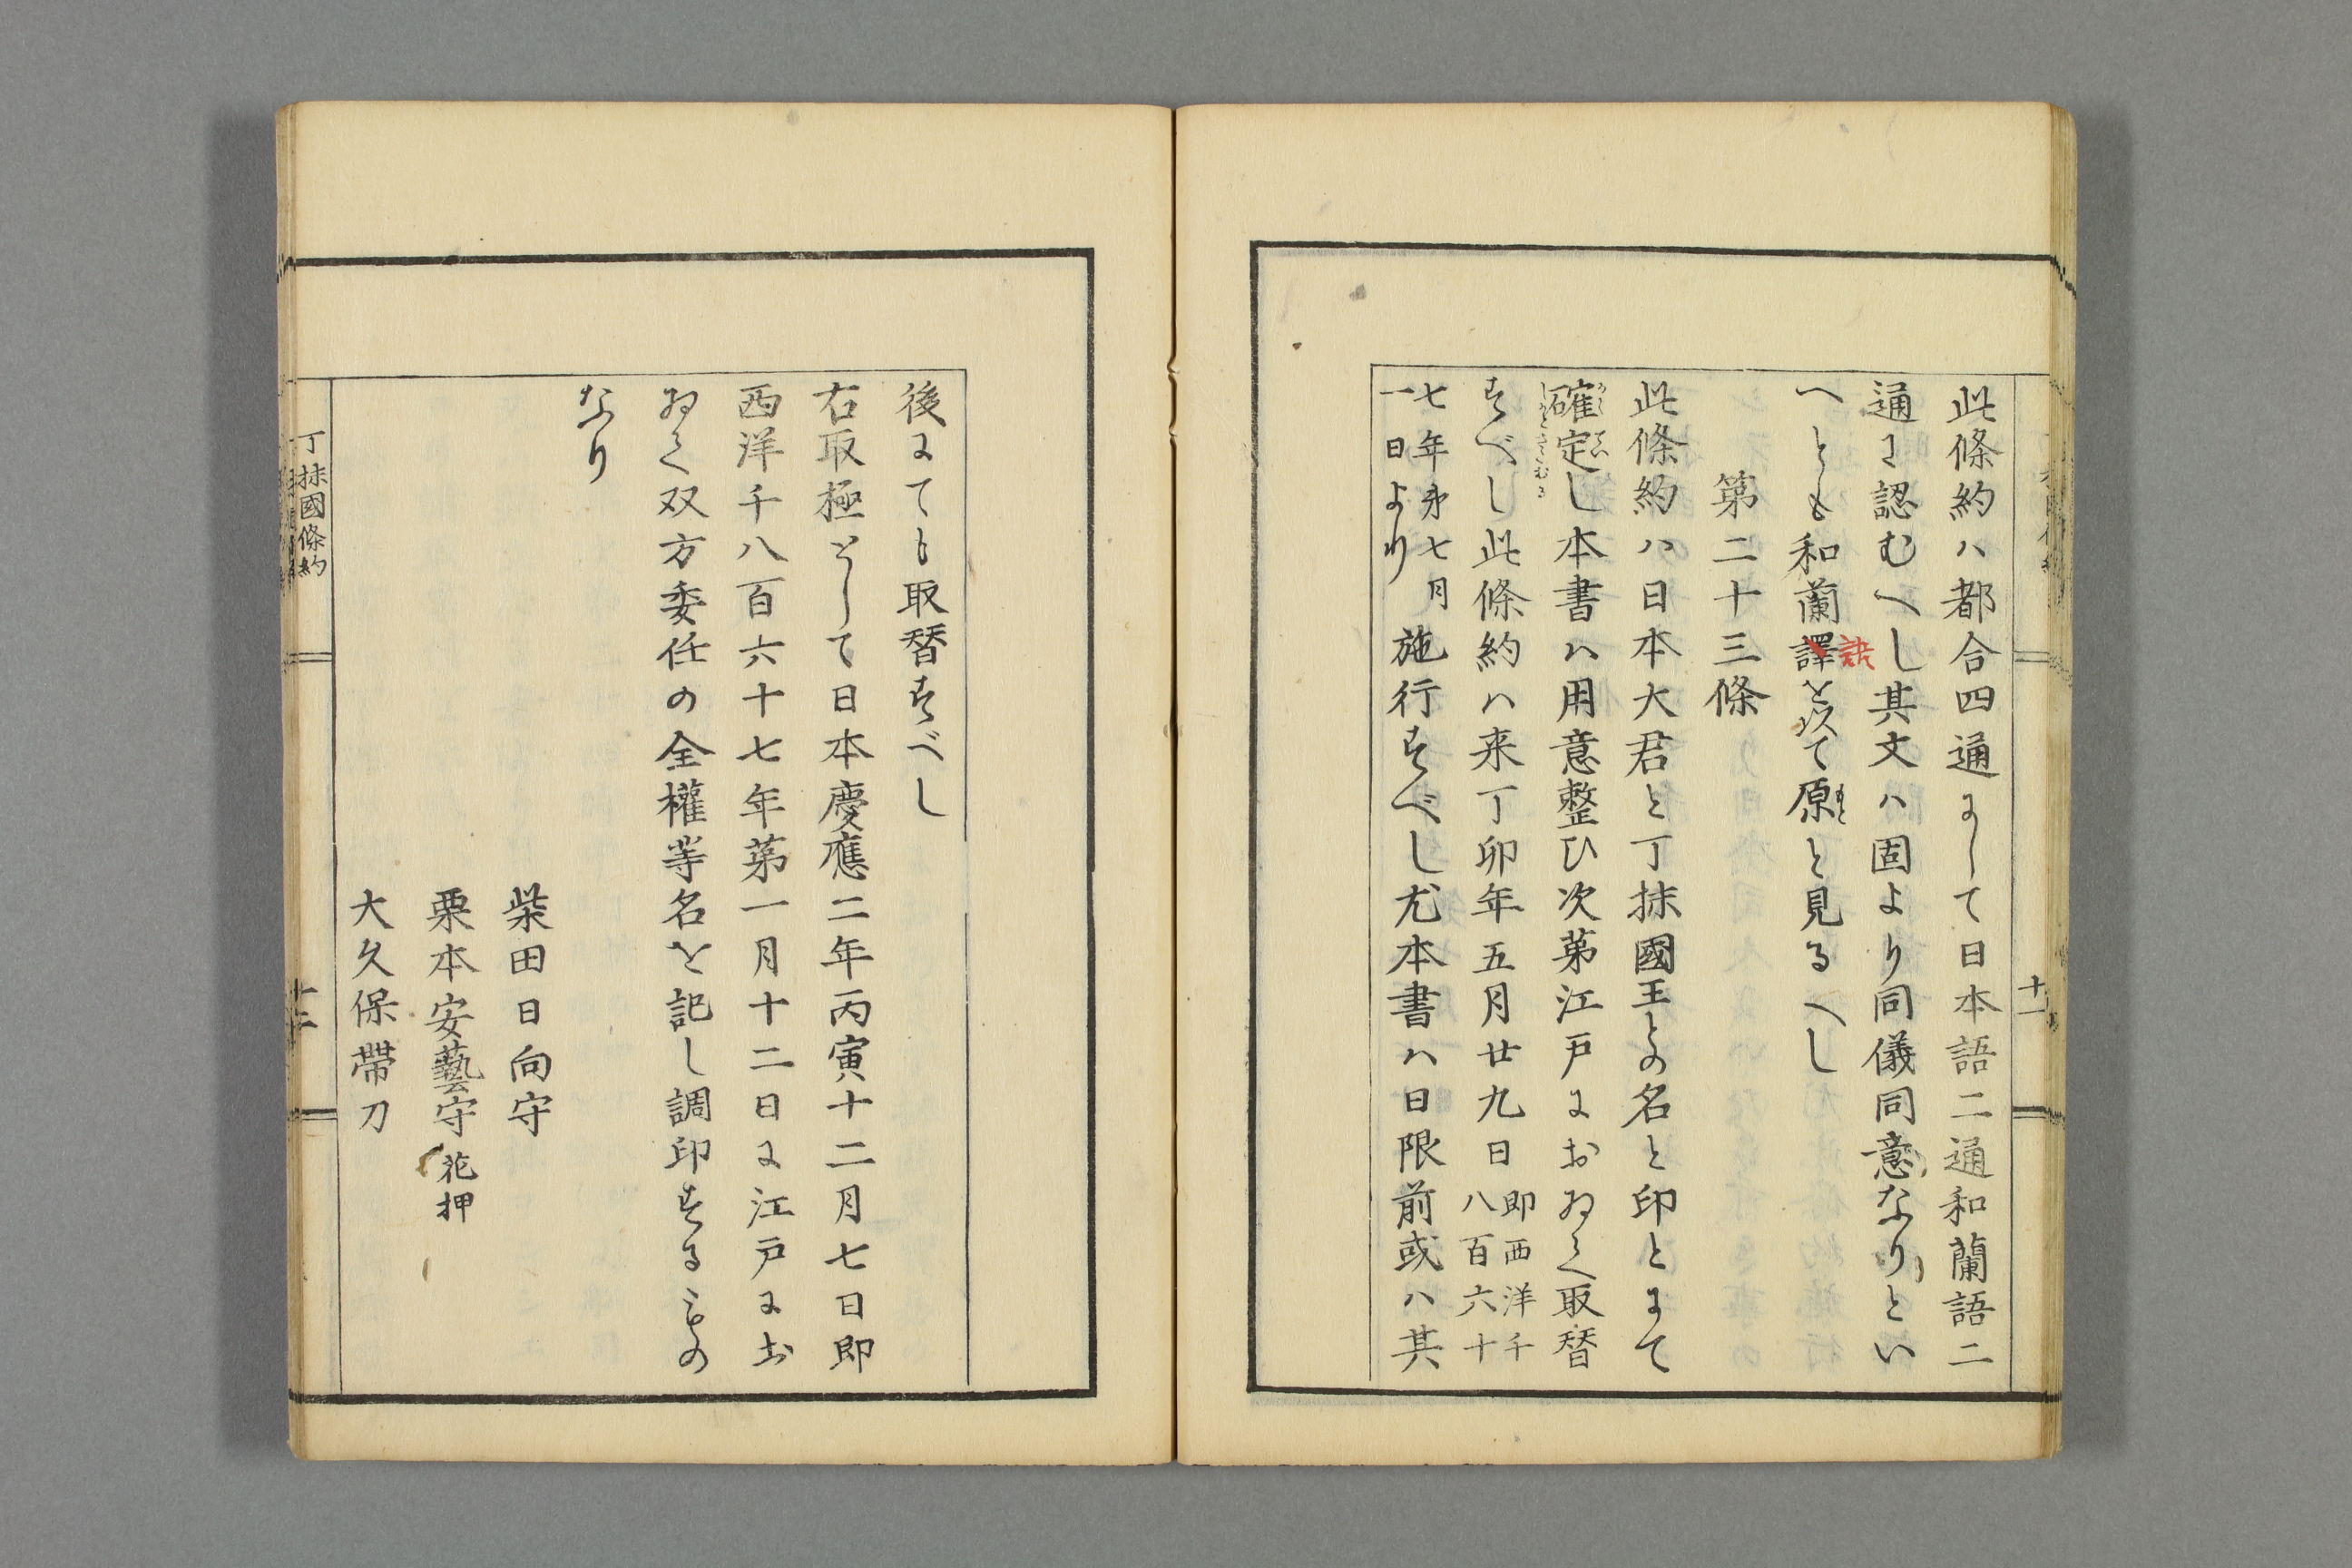 此條約ハ都合四通にして日本語二通和蘭語二
通に認むへし其文ハ固より同儀同意なりとい
へとも和蘭譯を以て原と見るへし
語
もと
第二十三條
此條約ハ日本大君と丁抹國王との名と印とにて
確定し本書ハ用意整ひ次第江戸におゐて取替
すべし此條約ハ来丁卯年五月廿九日即西洋千八百六十
七年第七月一日より施行すべし尤本書ハ日限前或ハ其
十二
後にても取替すべし
右取極として日本慶應二年丙寅十二月七日即
西洋千八百六十七年第一月十二日に江戸にお
ゐて双方委任の全權等名を記し調印するもの
なり
柴田日向守
栗本安藝守花押
大久保帶刀
丁抹國條約
十三